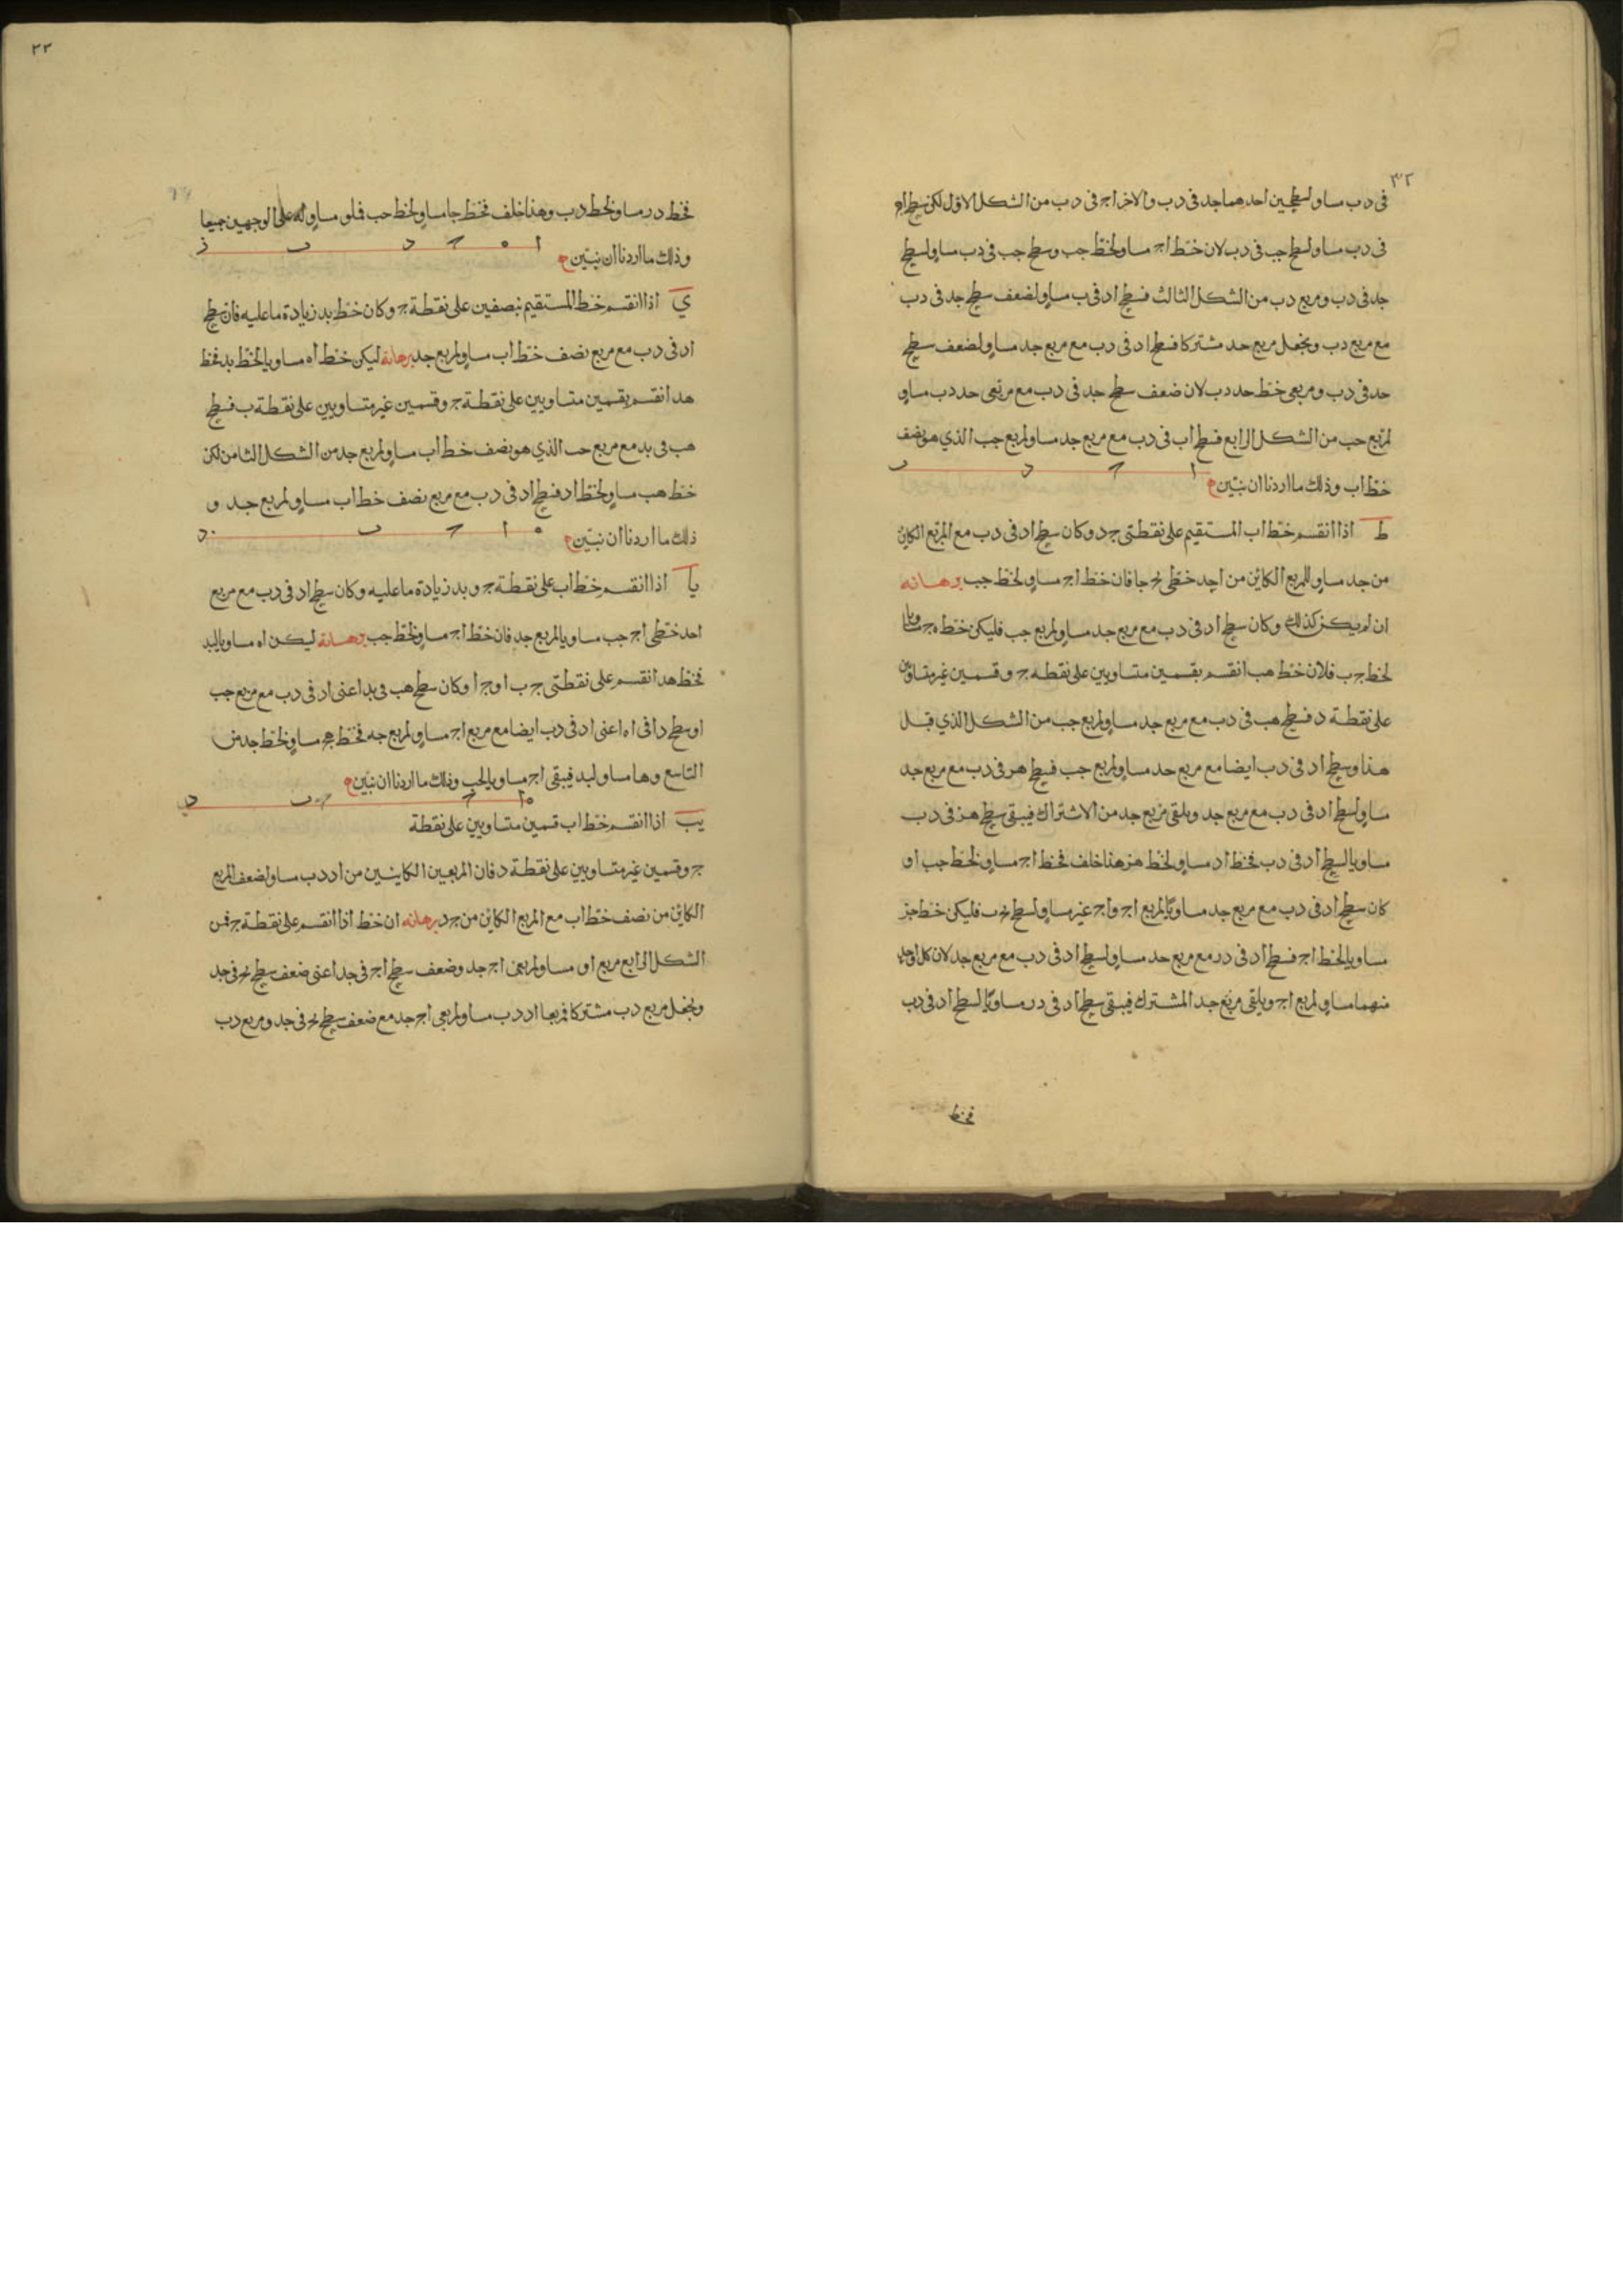 ٣٢
فى دب مساو لسطحين احدهما جد فى دب والاخر اج فى دب من الشكل الاول لكن سطح اج
فى دب مساو لسطح جب فى دب لان خط اج مساو لخط جب وسطح جب فى دب مساو لسطح
جد فى دب ومربع دب من الشكل الثالث فسطح اد فى ب مساو لضعف سطح جد فى دب
مع مربع دب ونجعل مربع حد مشتركا فسطح اد فى دب مع مربع جد مساو لضعف سطح
حد فى دب ومربعى خط حد دب لان ضعف سطح جد فى دب مع مربعى حد دب مساو
لمربع حب من الشكل الرابع فسطح اب فى دب مع مربع جد مساو لمربع جب الذي هو نصف
خط اب وذلك ما اردنا ان نبين
ا ح د ب
ط اذا انقسم خط اب المستقيم على نقطتى ج د وكان سطح اد فى دب مع المربع الكائن
من جد مساو للمربع الكائن من احد خطى بج جا فان خط اج مساو لخط جب برهانه
ان لم يكن كذلك وكان سطح اد فى دب مع مربع جد مساو لمربع جب فليكن خط ه ج مساويا
لخط جب فلان خط هب انقسم بقسمين متساويين على نقطه ج وقسمين غير متساويين
على نقطة د فسطح هب فى دب مع مربع جد مساو لمربع جب من الشكل الذي قبل
هذا وسطح اد فى دب ايضا مع مربع حد مساو لمربع جب فسطح هر فى دب مع مربع جد
مساو لسطح اد فى دب مع مربع جد ويلقى مربع جد من الاشتراك فيبقى سطح هز فى دب
مساويا لسطح اد فى دب فخط اد مساو لخط هز هذا خلف فخط اج مساو لخط جب او
كان سطح اد فى دب مع مربع جد مساويا لمربع اج واج غير مساو لسطح بحب فليكن خط جز
مساويا لخط اج فسطح اد فى در مع مربع حد مساو لسطح اد فى دب مع مربع جد لان كل واحد
منهما مساو لمربع اج ويلقى مربع جد المشترك فيبقى سطح اد فى در مساويا لسطح اد فى دب
فخط
٣٣
فخط در مساو لخط دب وهذا خلف فخط جا مساو لخط حب فلو مساو له على الوجهين جميعا
ا ه ح د ب ز
وذلك ما اردنا ان نبين
ي اذا انقسم خط المستقيم بنصفين على نقطة ج وكان خط بد زيادة ما عليه فان سطح
اد فى دب مع مربع نصف خط اب مساو لمربع جد برهانه ليكن خط اه مساويا لخط بد فخط
هد انقسم بقسمين متساويين على نقطة ج وقسمين غير متساويين على نقطة ب فسطح
هب فى بد مع مربع حب الذي هو نصف خط اب مساو لمربع جد من الشكل الثامن لكن
خط هب مساو لخط اد فسطح اد فى دب مع مربع نصف خط اب مساو لمربع جد و
ه ا ح ب د
ذلك ما اردنا ان نبين
يا اذا انقسم خط اب على نقطة ج وبد زيادة ما عليه وكان سطح اد فى دب مع مربع
احد خطى اج جب مساويا لمربع جد فان خط اج مساو لخط جب برهانه ليكن اه مساويا لبد
فخط هد انقسم على نقطتى ج ب او ج ا وكان سطح هب فى بد اعنى اد فى دب مع مربع جب
او سطح دا فى اه اعنى اد فى دب ايضا مع مربع اج مساو لمربع جه فخط هج مساو لخط جد من
التاسع وها مساو لبد فيبقى اج مساويا لحب وذلك ما اردنا ان نبين
ه ا ح ب د
يب اذا انقسم خط اب قسمين متساويين على نقطة
ج وقسمين غير متساويين على نقطة د فان المربعين الكاينين من اد دب مساو لضعف المربع
الكائن من نصف خط اب مع المربع الكائن من جد برهانه ان خط اذا انقسم على نقطة ج فمن
الشكل الرابع مربع اد مساو لمربعى اج جد وضعف سطح اج فى جد اعنى ضعف سطح بج فى جد
ونجعل مربع دب مشتركا فمربعا اد دب مساو لمربعى اج جد مع ضعف سطح بج فى جد ومربع دب